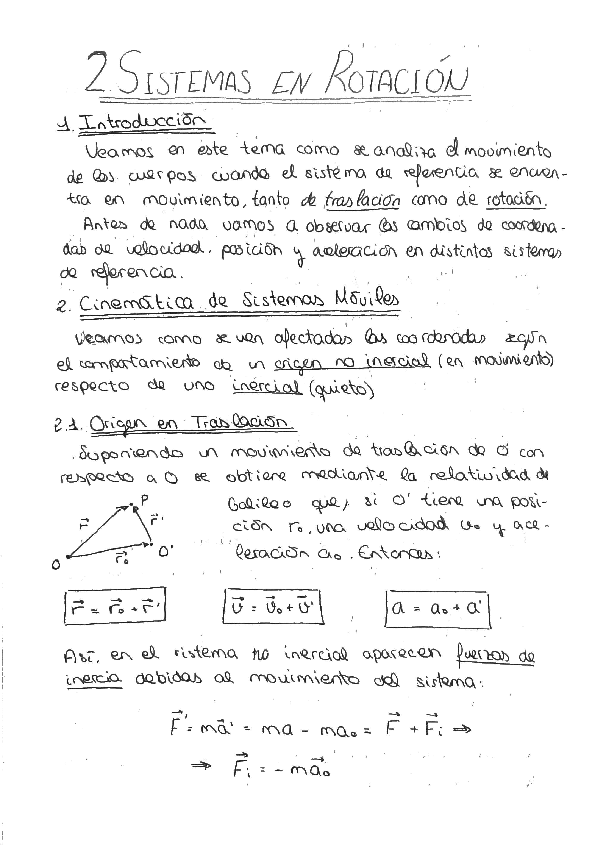 2. SISTEMAS EN ROTACIÓN
1. Introducción
Veamos en este tema como se analiza el movimiento
de los cuerpos cuando el sistema de referencia se encuen-
tra en movimiento, tanto de traslación como de rotación.
Antes de nada vamos a observar los cambios de coordena-
das de velocidad, posición y aceleración en distintos sistemas
de referencia.
2. Cinemática de Sistemas Móviles
Veamos como se ven afectadas las coordenadas según
el comportamiento de un origen no inercial (en movimiento)
respecto de uno inercial (quieto)
2.1. Origen en Traslación
Suponiendo un movimiento de traslación de O' con
respecto a O se obtiene mediante la relatividad de
Galileo que, si O' tiene una posi-
ción r₀, una velocidad v₀ y ace-
leración a₀. Entonces:
P
r⃗ r⃗'
O r⃗₀ O'
r⃗ = r⃗₀ + r⃗' v⃗ = v⃗₀ + v⃗' a = a₀ + a'
Así, en el sistema no inercial aparecen fuerzas de
inercia debidas al movimiento del sistema:
F⃗' = ma⃗' = ma - ma₀ = F⃗ + F⃗i ⇒
⇒ F⃗i = - ma⃗₀